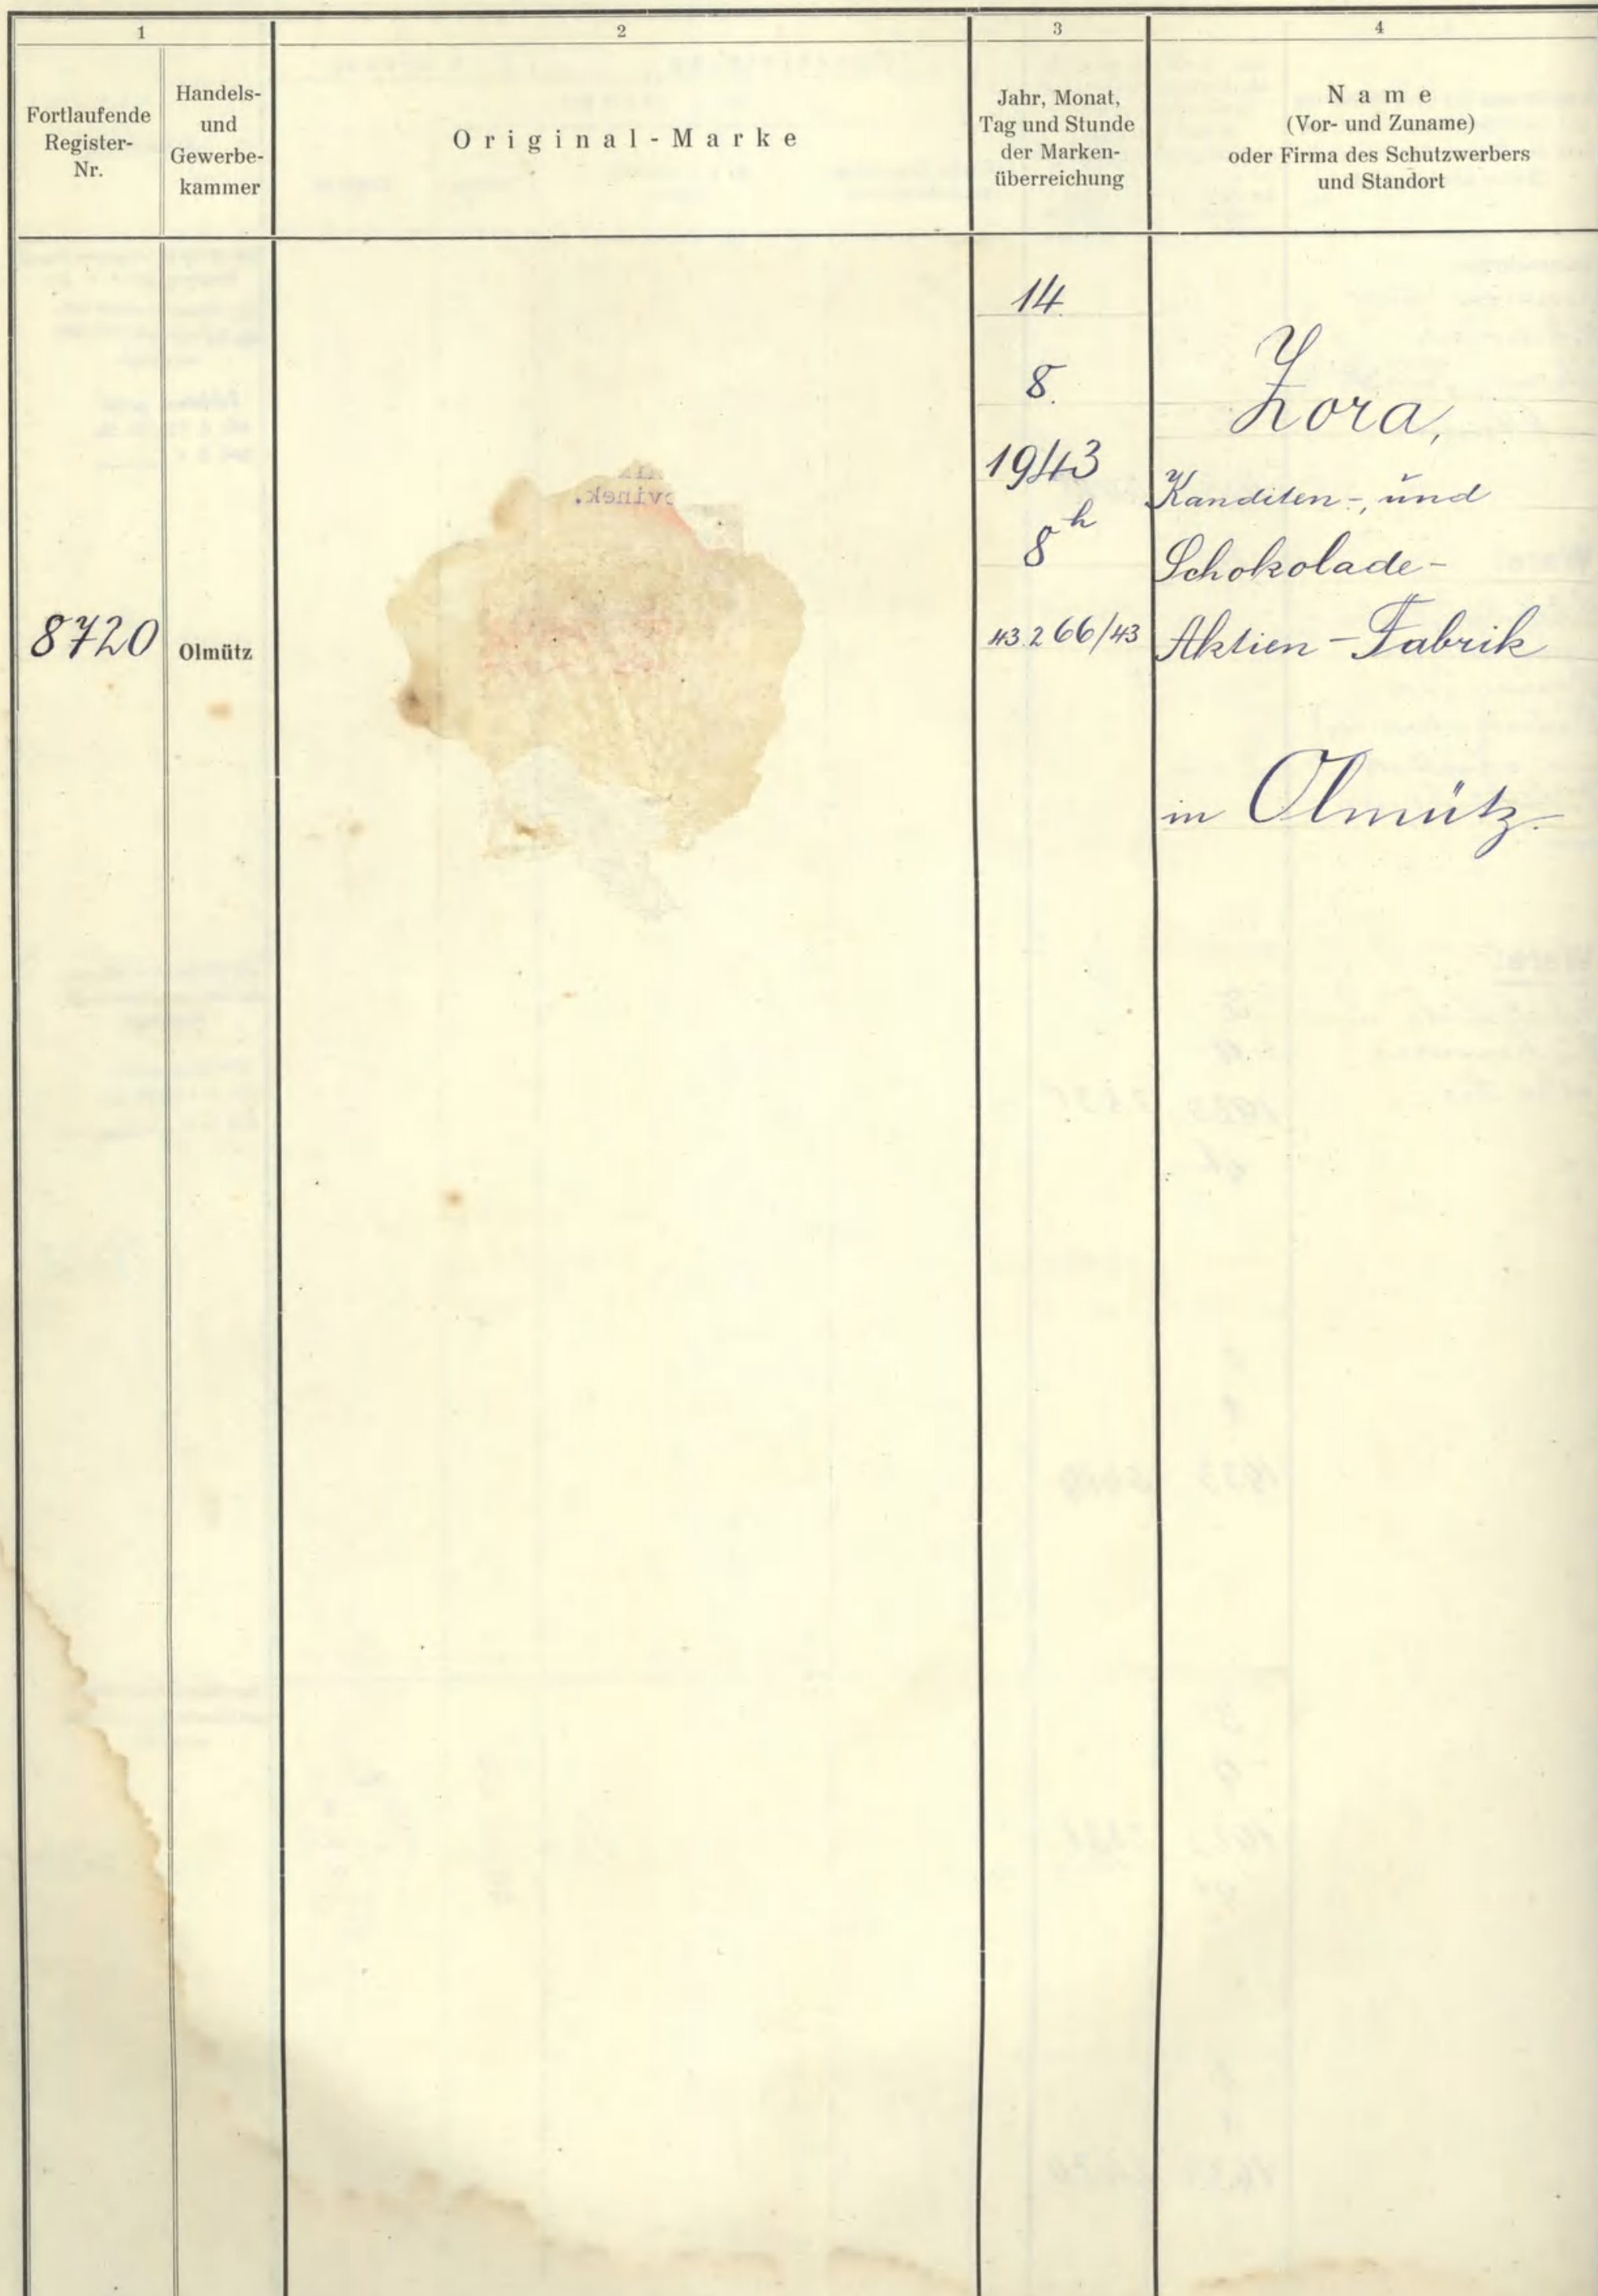 1
2
3
4
Fortlaufende
Register-
Nr.
Handels-
und
Gewerbe-
kammer
Original-Marke
Jahr, Monat,
Tag und Stunde
der Marken-
überreichung
Name
(Vor- und Zuname)
oder Firma des Schutzwerbers
und Standort
8720
Olmütz
14.
8.
1943
8h
43.266/43
Zora,
Kanditen-, und
Schokolade-
Aktien-Fabrik
in Olmütz.